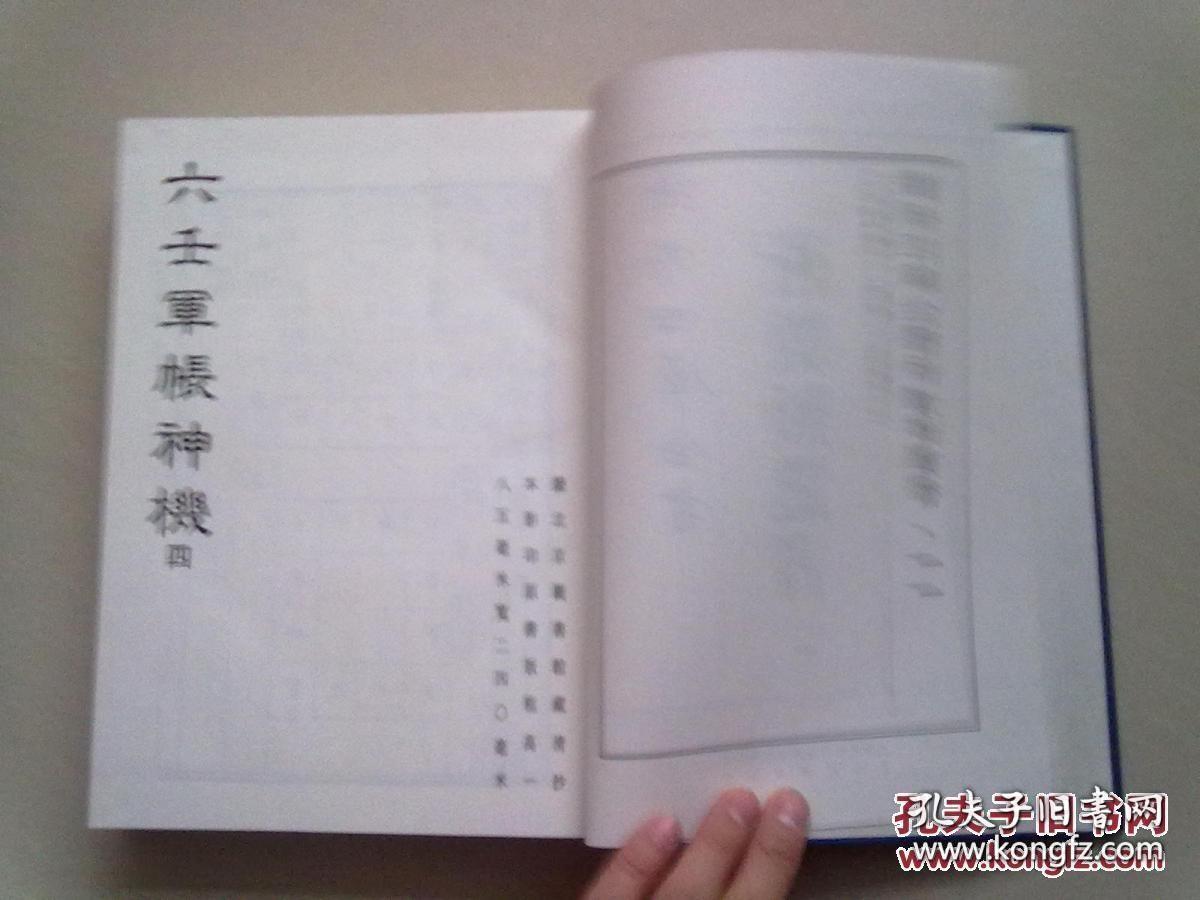 六壬軍帳神機
四
據北京圖書館藏清抄
本影印原書版框高一
八五毫米寬二四〇毫米
孔夫子旧書网
www.kongfz.com